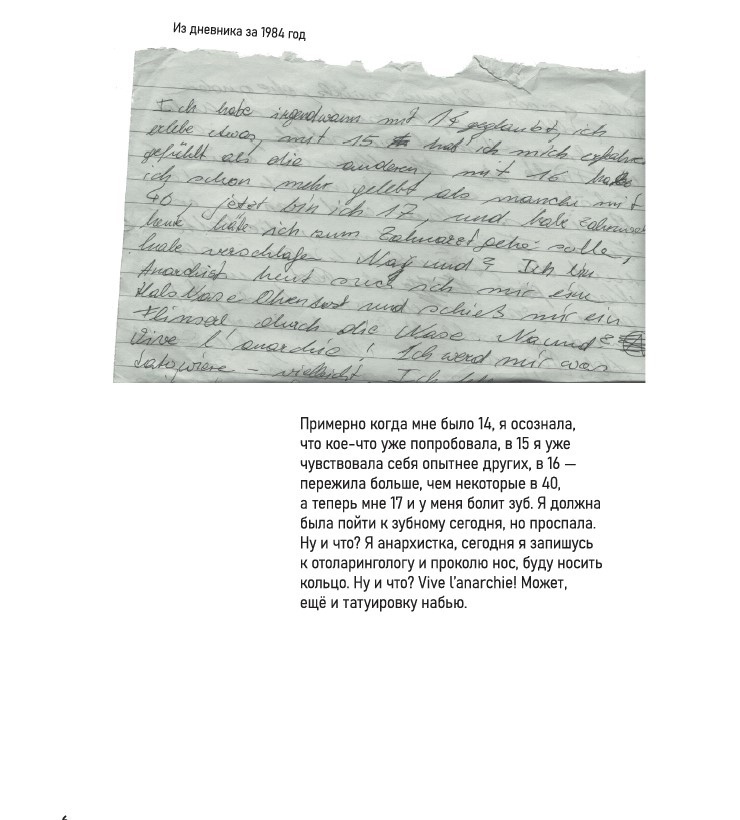 Из дневника за 1984 год
Ich habe irgendwann mit 14 geglaubt, ich
erlebe etwas, mit 15 hab ich mich erfahre
gefühlt als die anderen, mit 16 habe
ich schon mehr gelebt als manche mit
40, jetzt bin ich 17, und habe Zahnweh
heute hätte ich zum Zahnarzt sollen,
habe verschlafen Na und? Ich bin
Anarchist heut such ich mir ein
Hals Nase Ohrenarzt und schieß mir ein
durch die Nase. Na und?
Vive l'anarchie! Ich werd mir was
tatowiere - vielleicht. Ich
Примерно когда мне было 14, я осознала,
что кое-что уже попробовала, в 15 я уже
чувствовала себя опытнее других, в 16 —
пережила больше, чем некоторые в 40,
а теперь мне 17 и у меня болит зуб. Я должна
была пойти к зубному сегодня, но проспала.
Ну и что? Я анархистка, сегодня я запишусь
к отоларингологу и проколю нос, буду носить
кольцо. Ну и что? Vive l'anarchie! Может,
ещё и татуировку набью.